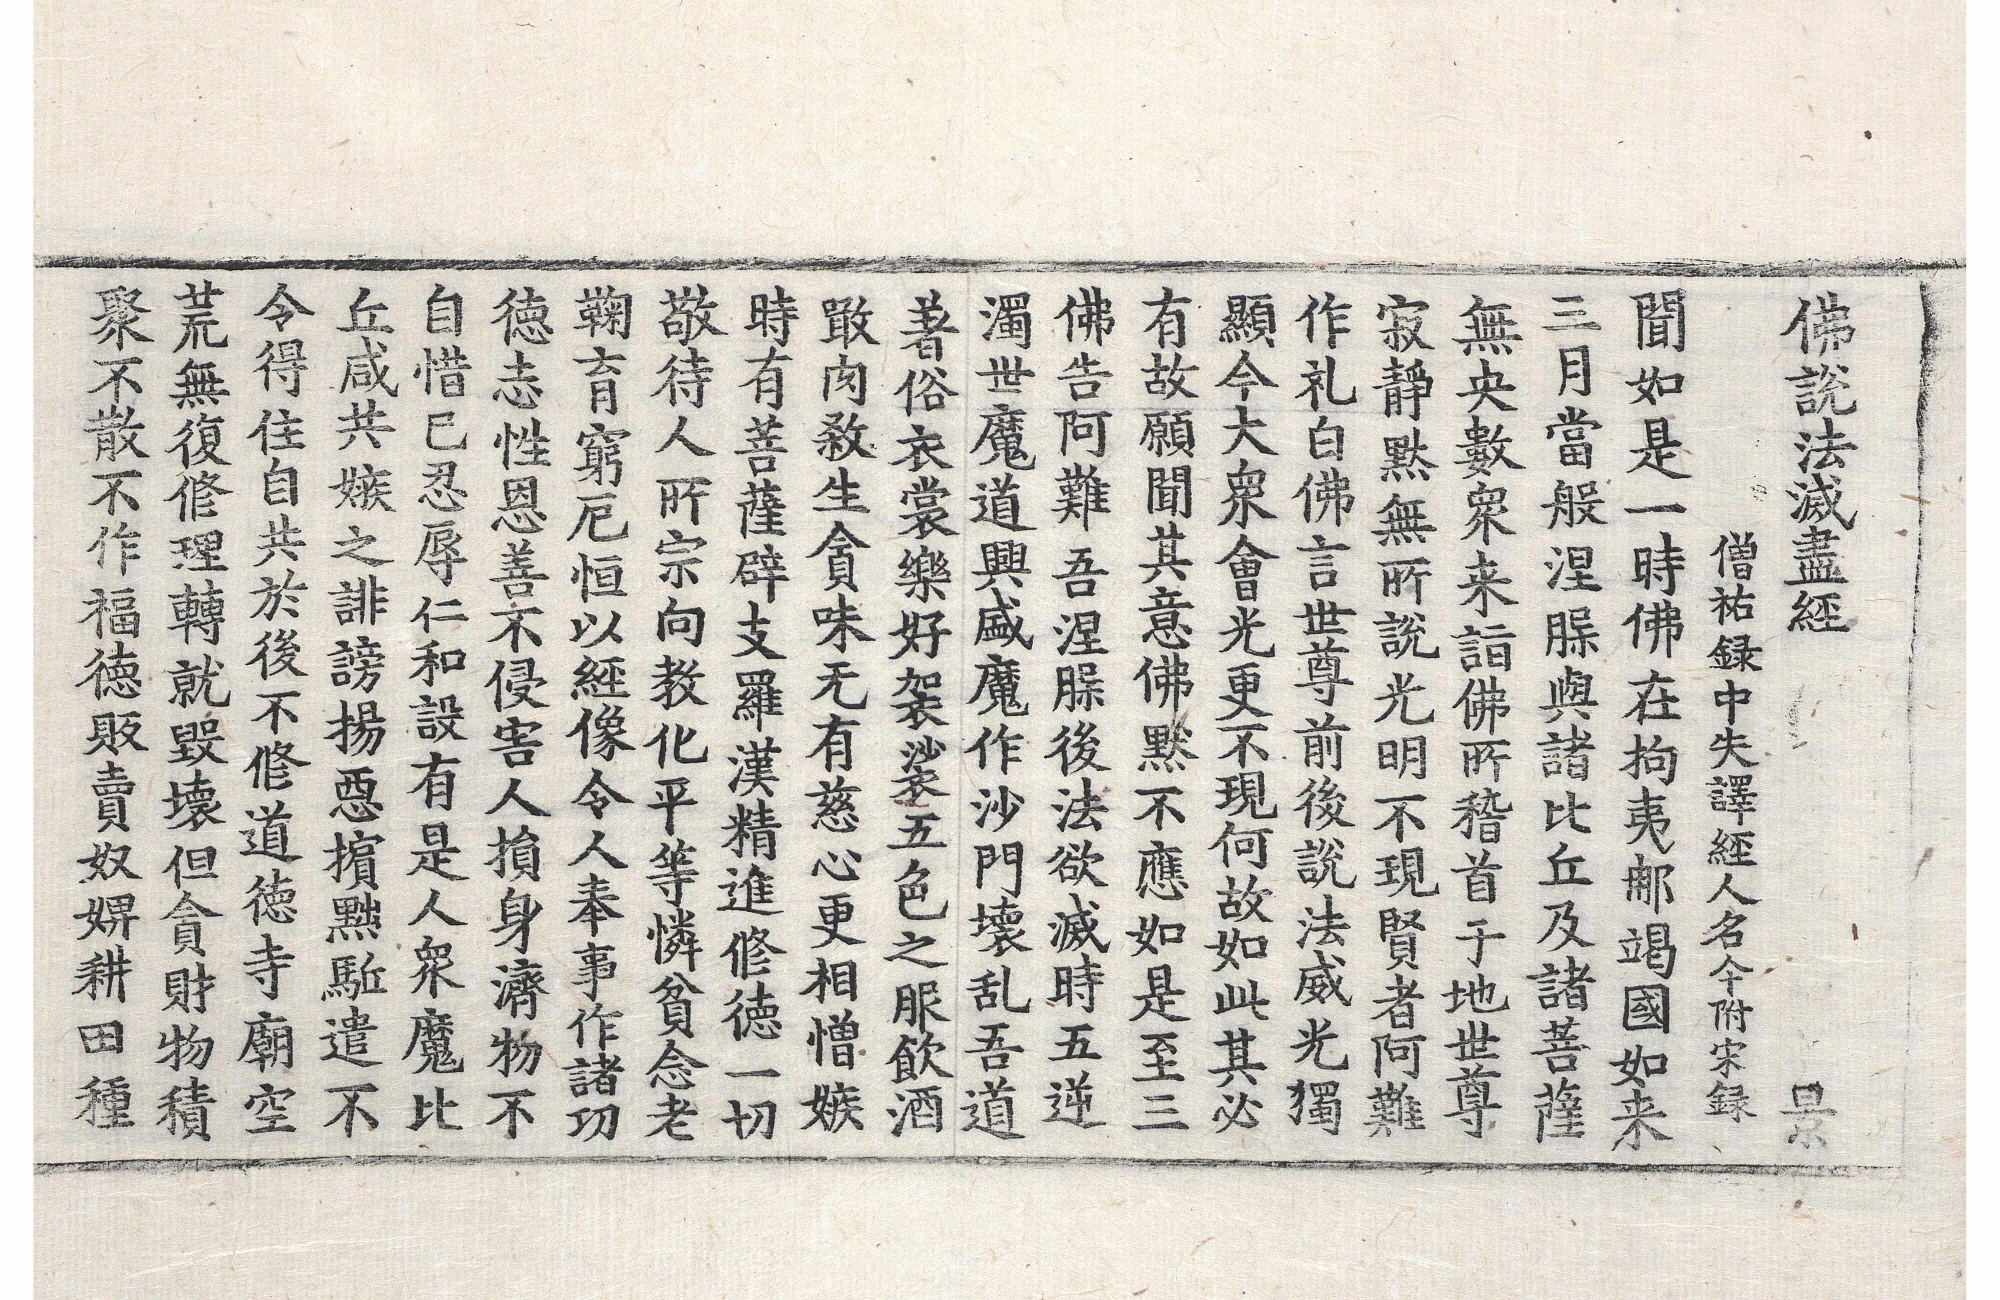 佛說法滅盡經 景
僧祐録中失譯經人名今附宋録
聞如是一時佛在拘夷那竭國如来
三月當般涅槃與諸比丘及諸菩薩
無央數衆来詣佛所稽首于地世尊
寂靜黙無所說光明不現賢者阿難
作礼白佛言世尊前後說法威光獨
顯今大衆會光更不現何故如此其必
有故願聞其意佛黙不應如是至三
佛告阿難吾涅槃後法欲滅時五逆
濁世魔道興盛魔作沙門壞乱吾道
著俗衣裳樂好袈裟五色之服飲酒
噉肉煞生貪味无有慈心更相憎嫉
時有菩薩辟支羅漢精進修德一切
敬待人所宗向教化平等憐貧念老
鞠育窮厄恒以經像令人奉事作諸功
德志性恩善不侵害人損身濟物不
自惜己忍辱仁和設有是人衆魔比
丘咸共嫉之誹謗揚惡擯黜駈遣不
令得住自共於後不修道德寺廟空
荒無復修理轉就毀壞但貪財物積
聚不散不作福德販賣奴婢耕田種